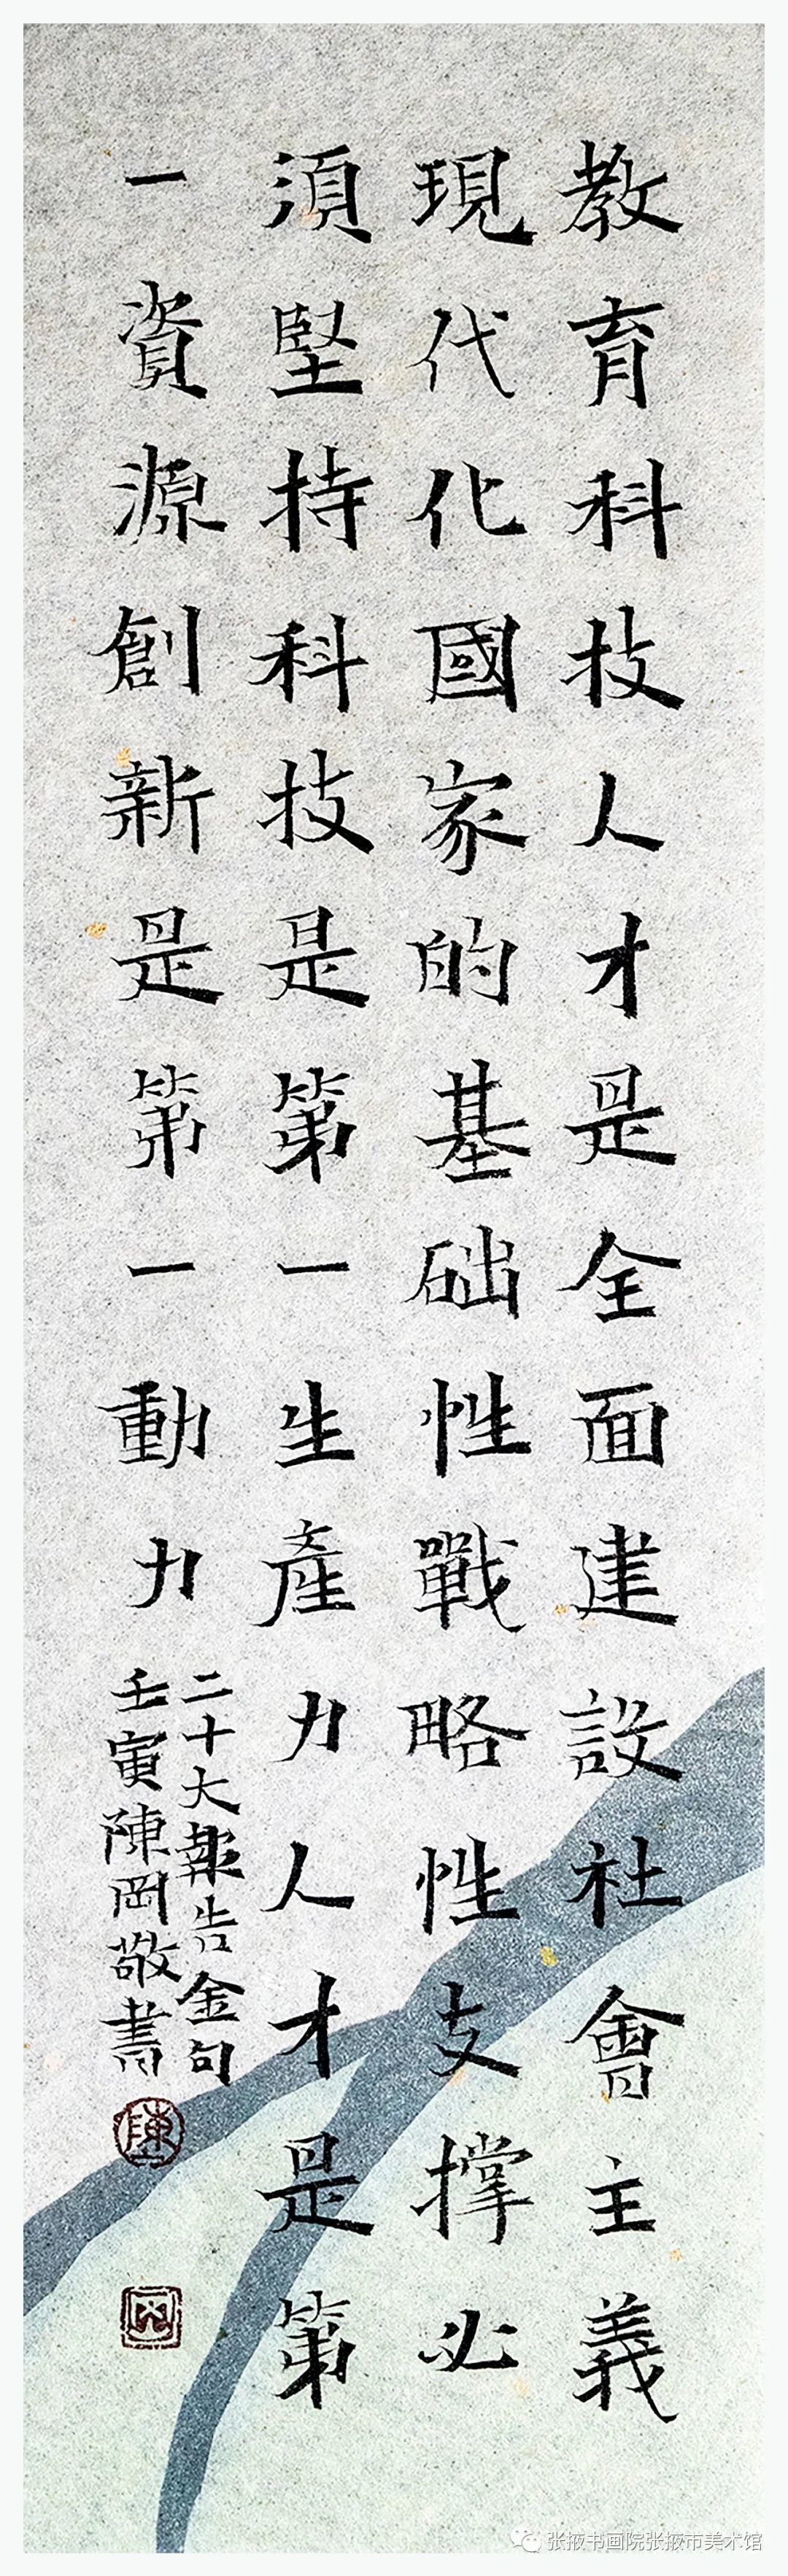 教育科技人才是全面建設社會主義
現代化國家的基础性戰略性支撑必
須堅持科技是第一生產力人才是第
一資源創新是第一動力
二十大報告金句
壬寅陳岡敬書
陳
张掖书画院张掖市美术馆